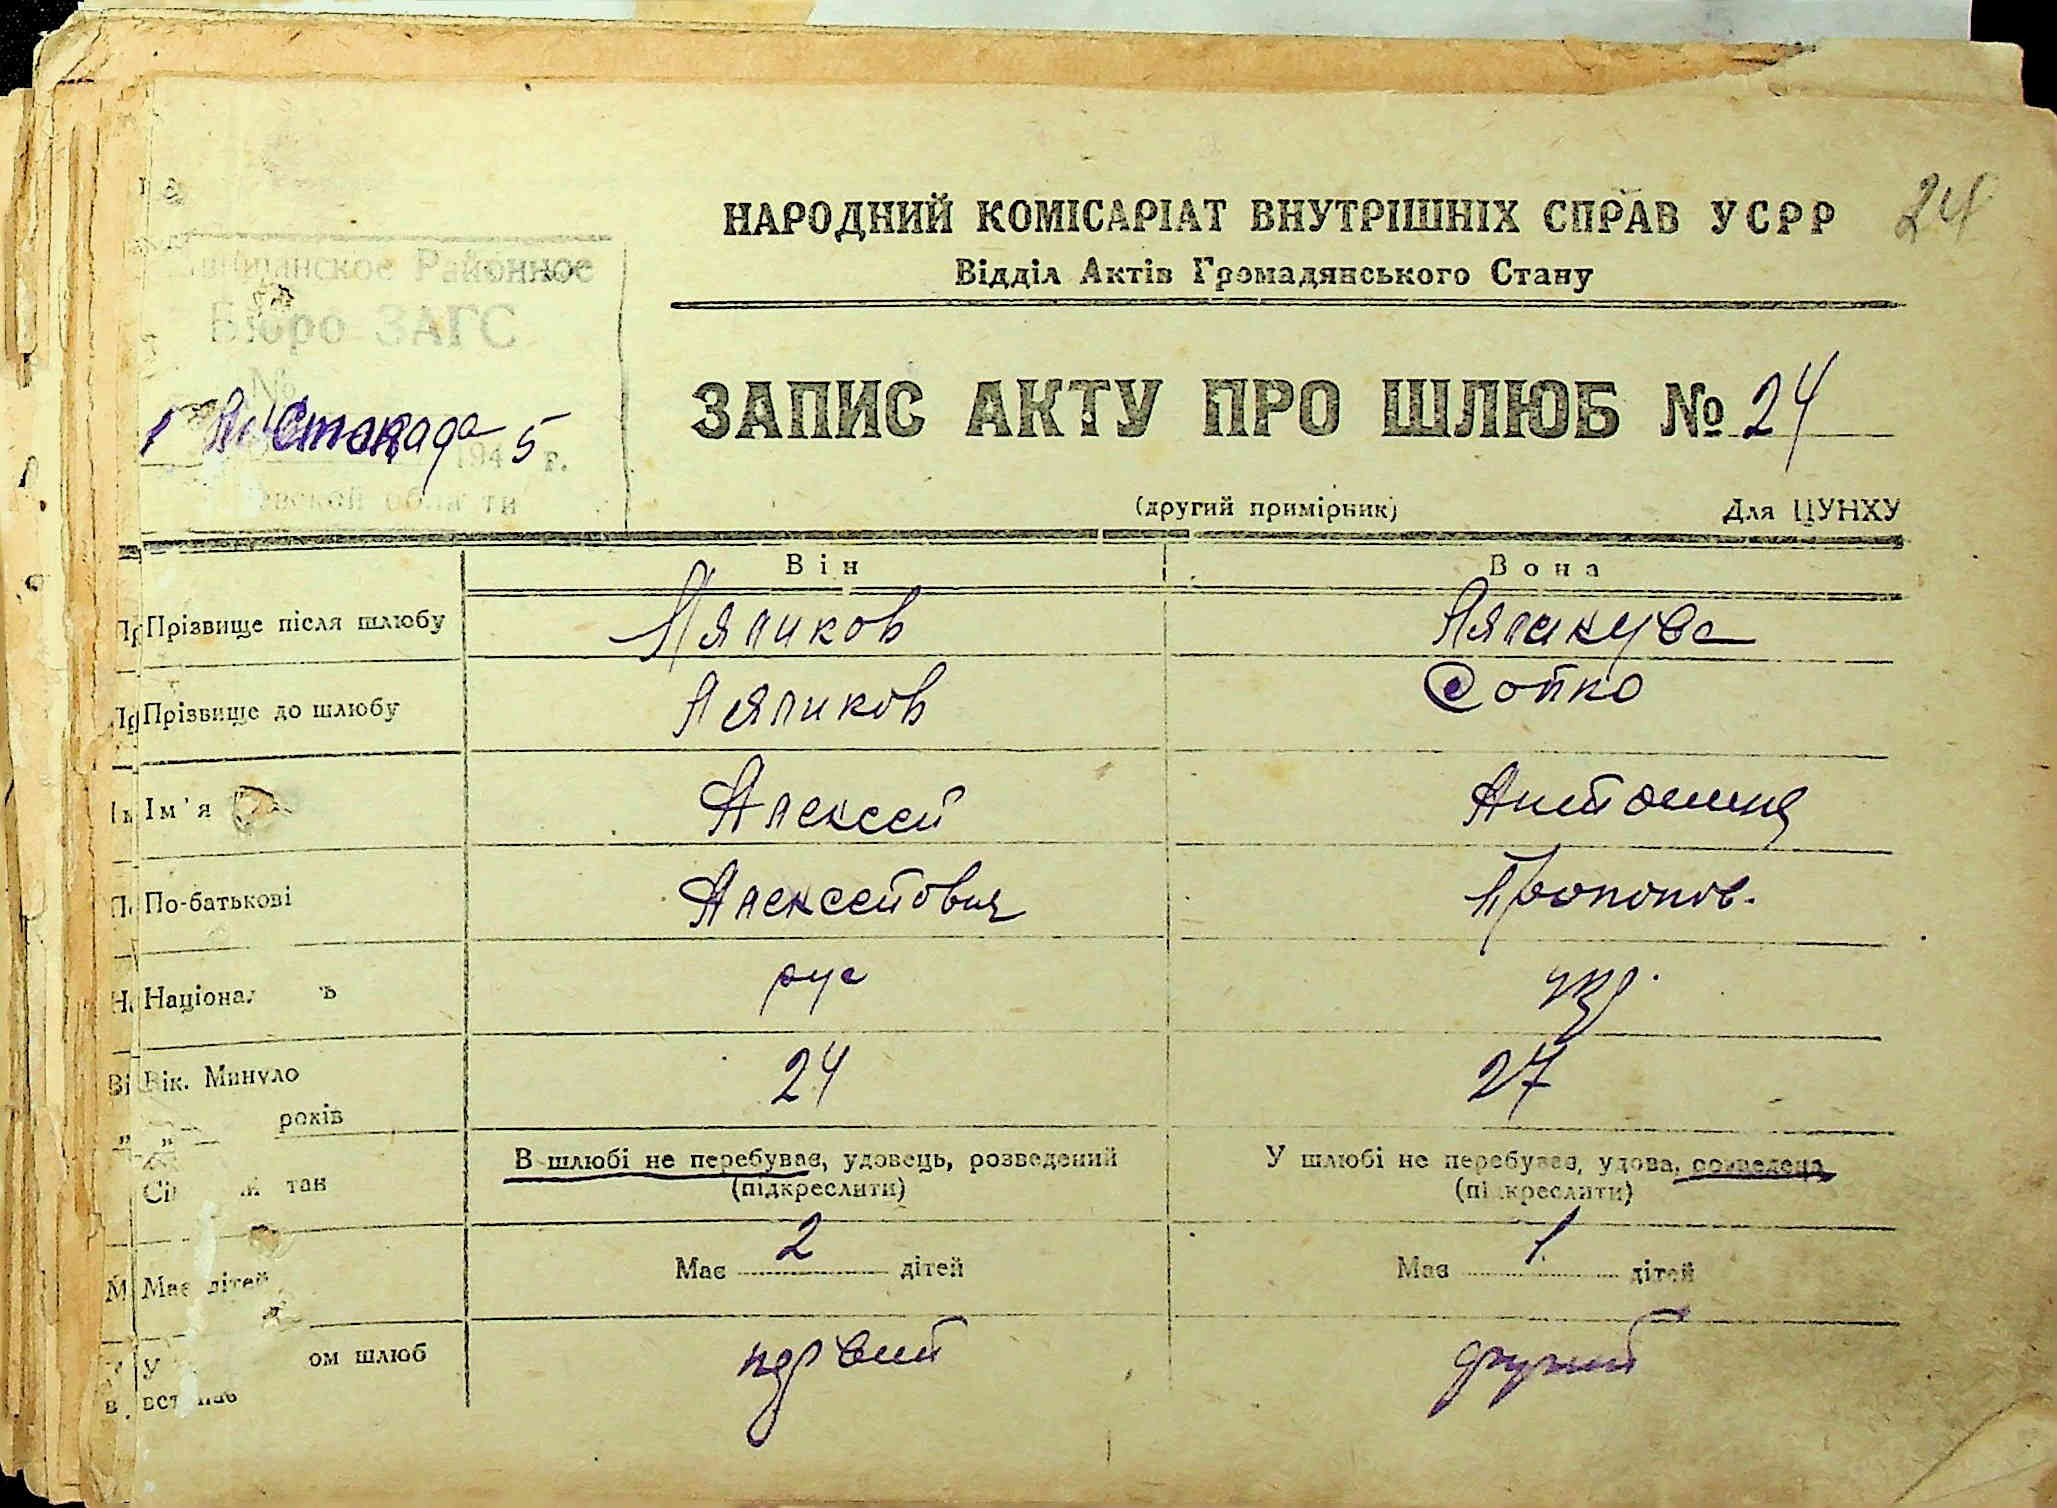 24
НАРОДНИЙ КОМІСАРІАТ ВНУТРІШНІХ СПРАВ УСРР
Відділ Актів Громадянського Стану
Районное
Бюро ЗАГС
№
1 Листопада 1945 г.
ЗАПИС АКТУ ПРО ШЛЮБ № 24
(другий примірник) Для ЦУНХУ
Він Вона
Прізвище після шлюбу Ляпиков Ляпикува
Прізвище до шлюбу Ляпиков Сопко
Ім'я Алексей Антонина
По-батькові Алексейович Прокопов.
Націонал ь рус укр.
Вік. Минуло
років 24 27
В шлюбі не перебуває, удовець, розведений У шлюбі не перебуває, удова, розведена
тан (підкреслити) (підкреслити)
Має дітей Має 2 дітей Має 1 дітей
У ом шлюб первий другий